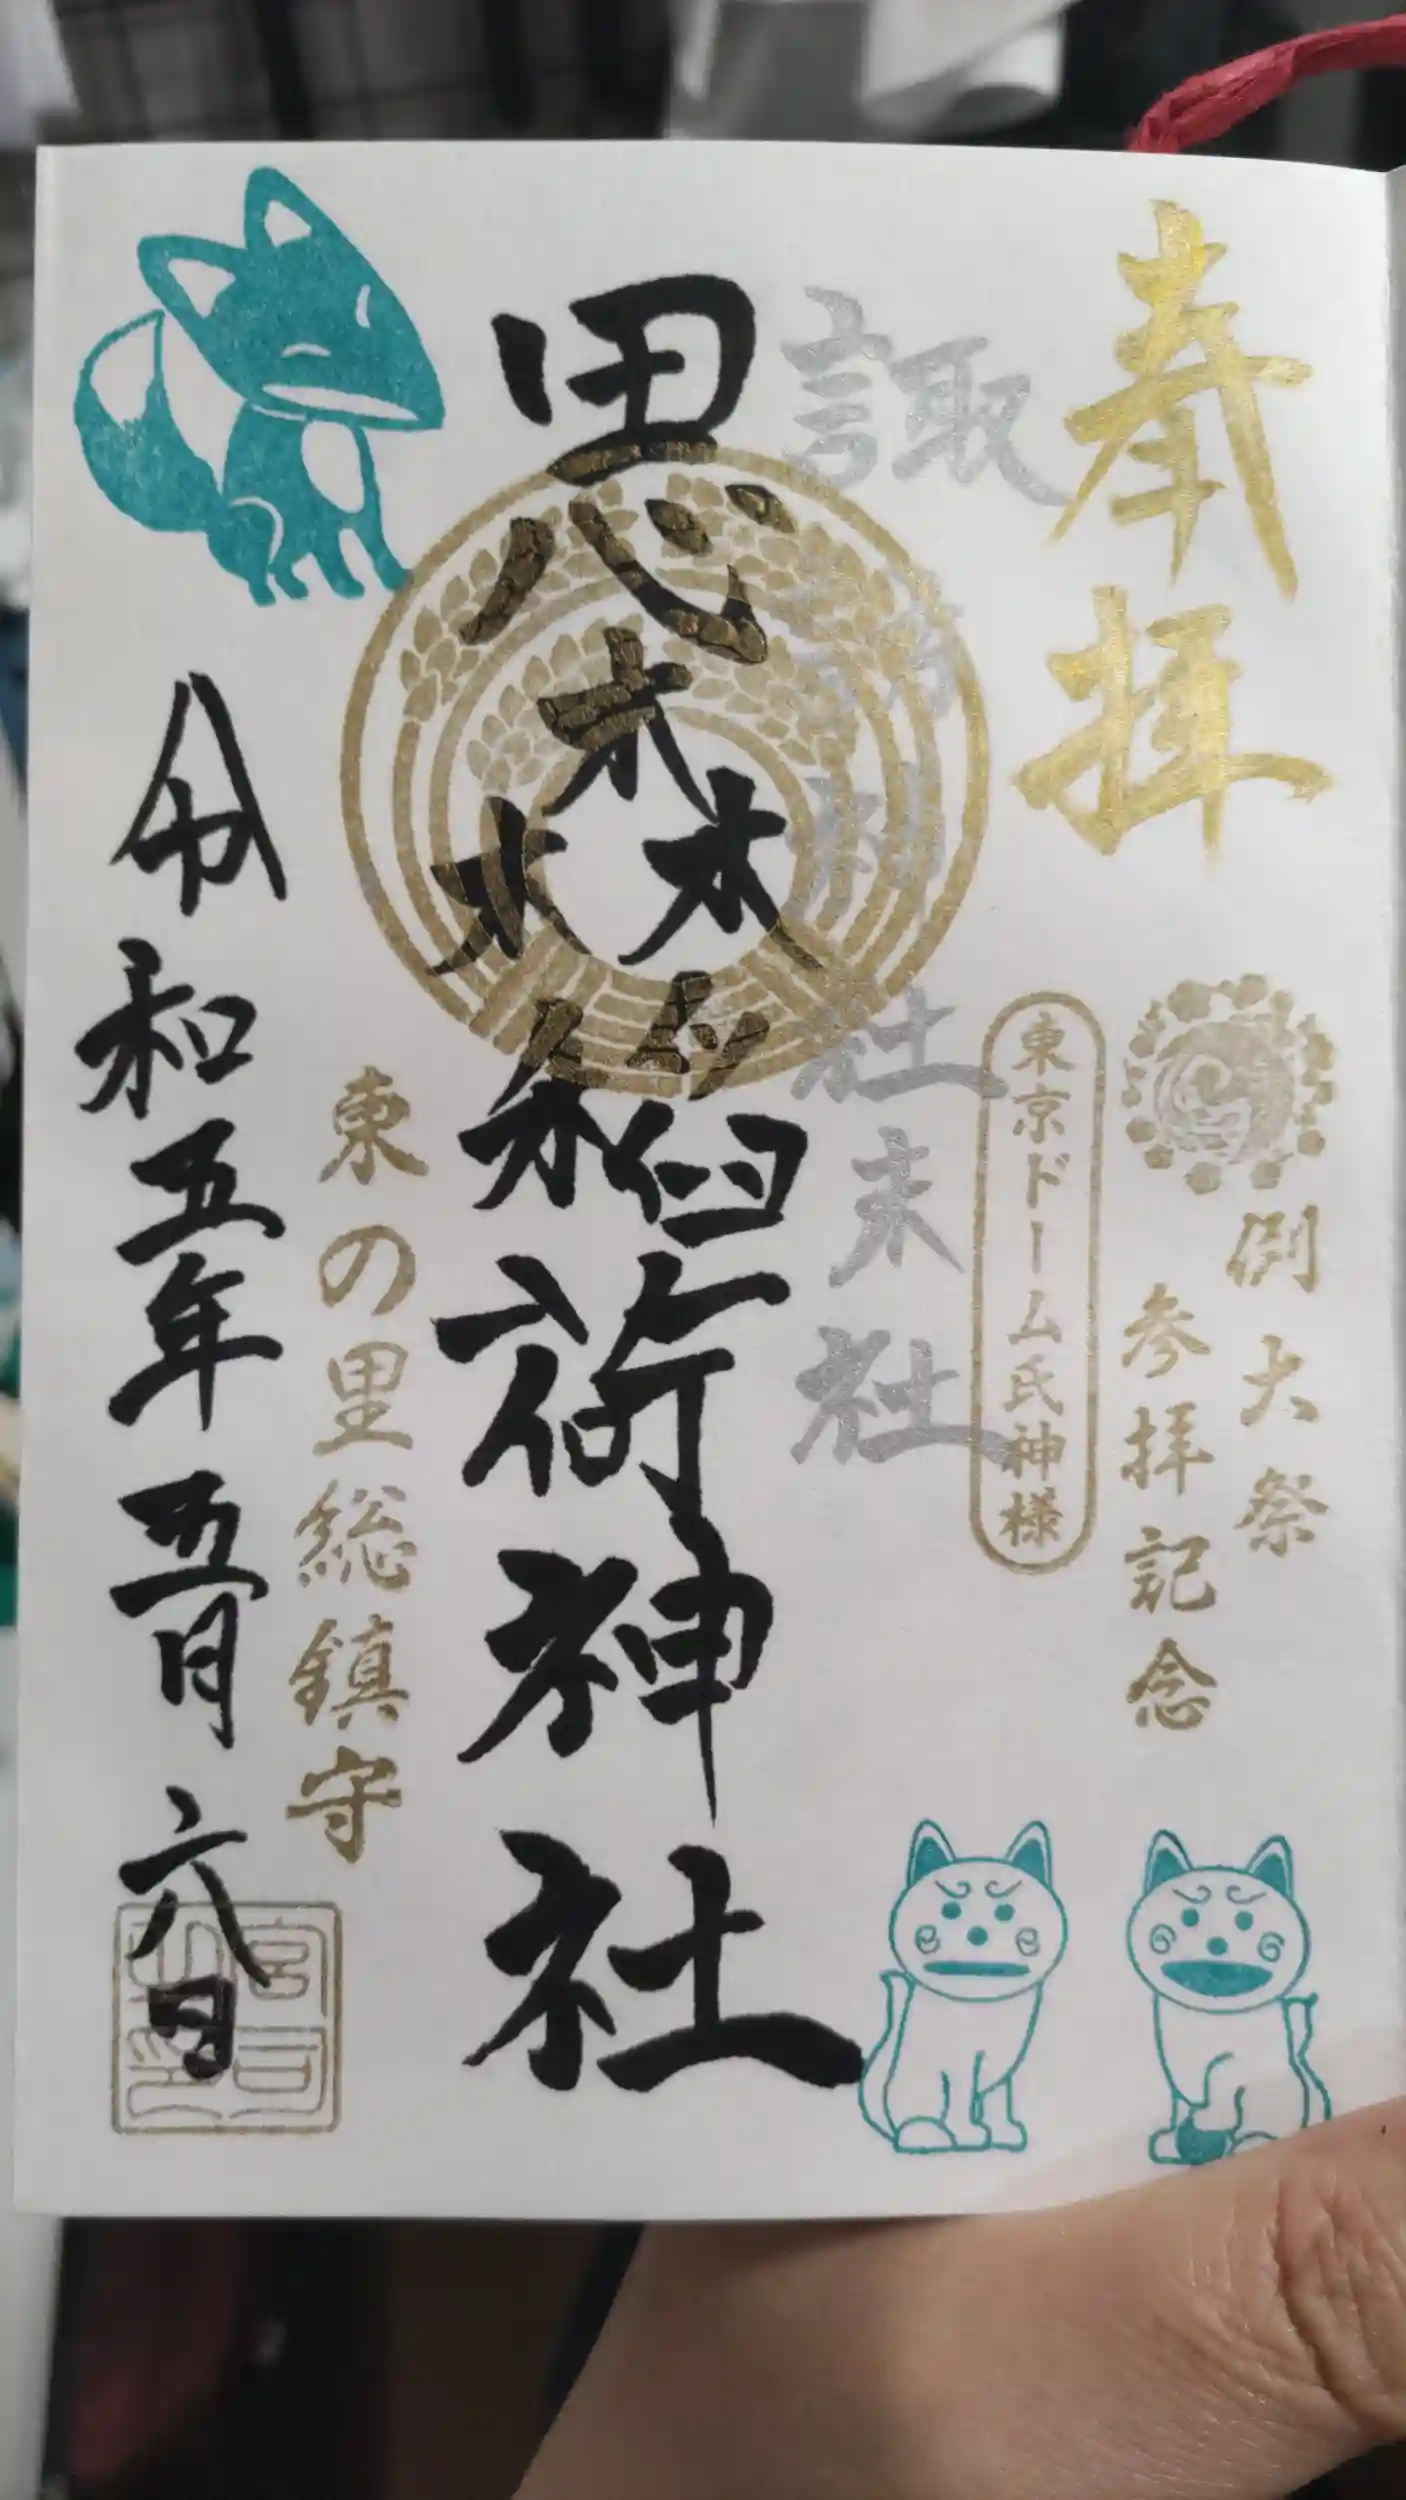 奉拝
例大祭
参拝記念
東京ドーム氏神様
諏訪神社末社
黒森稲荷神社
東の里総鎮守
令和五年五月六日
宮司之印